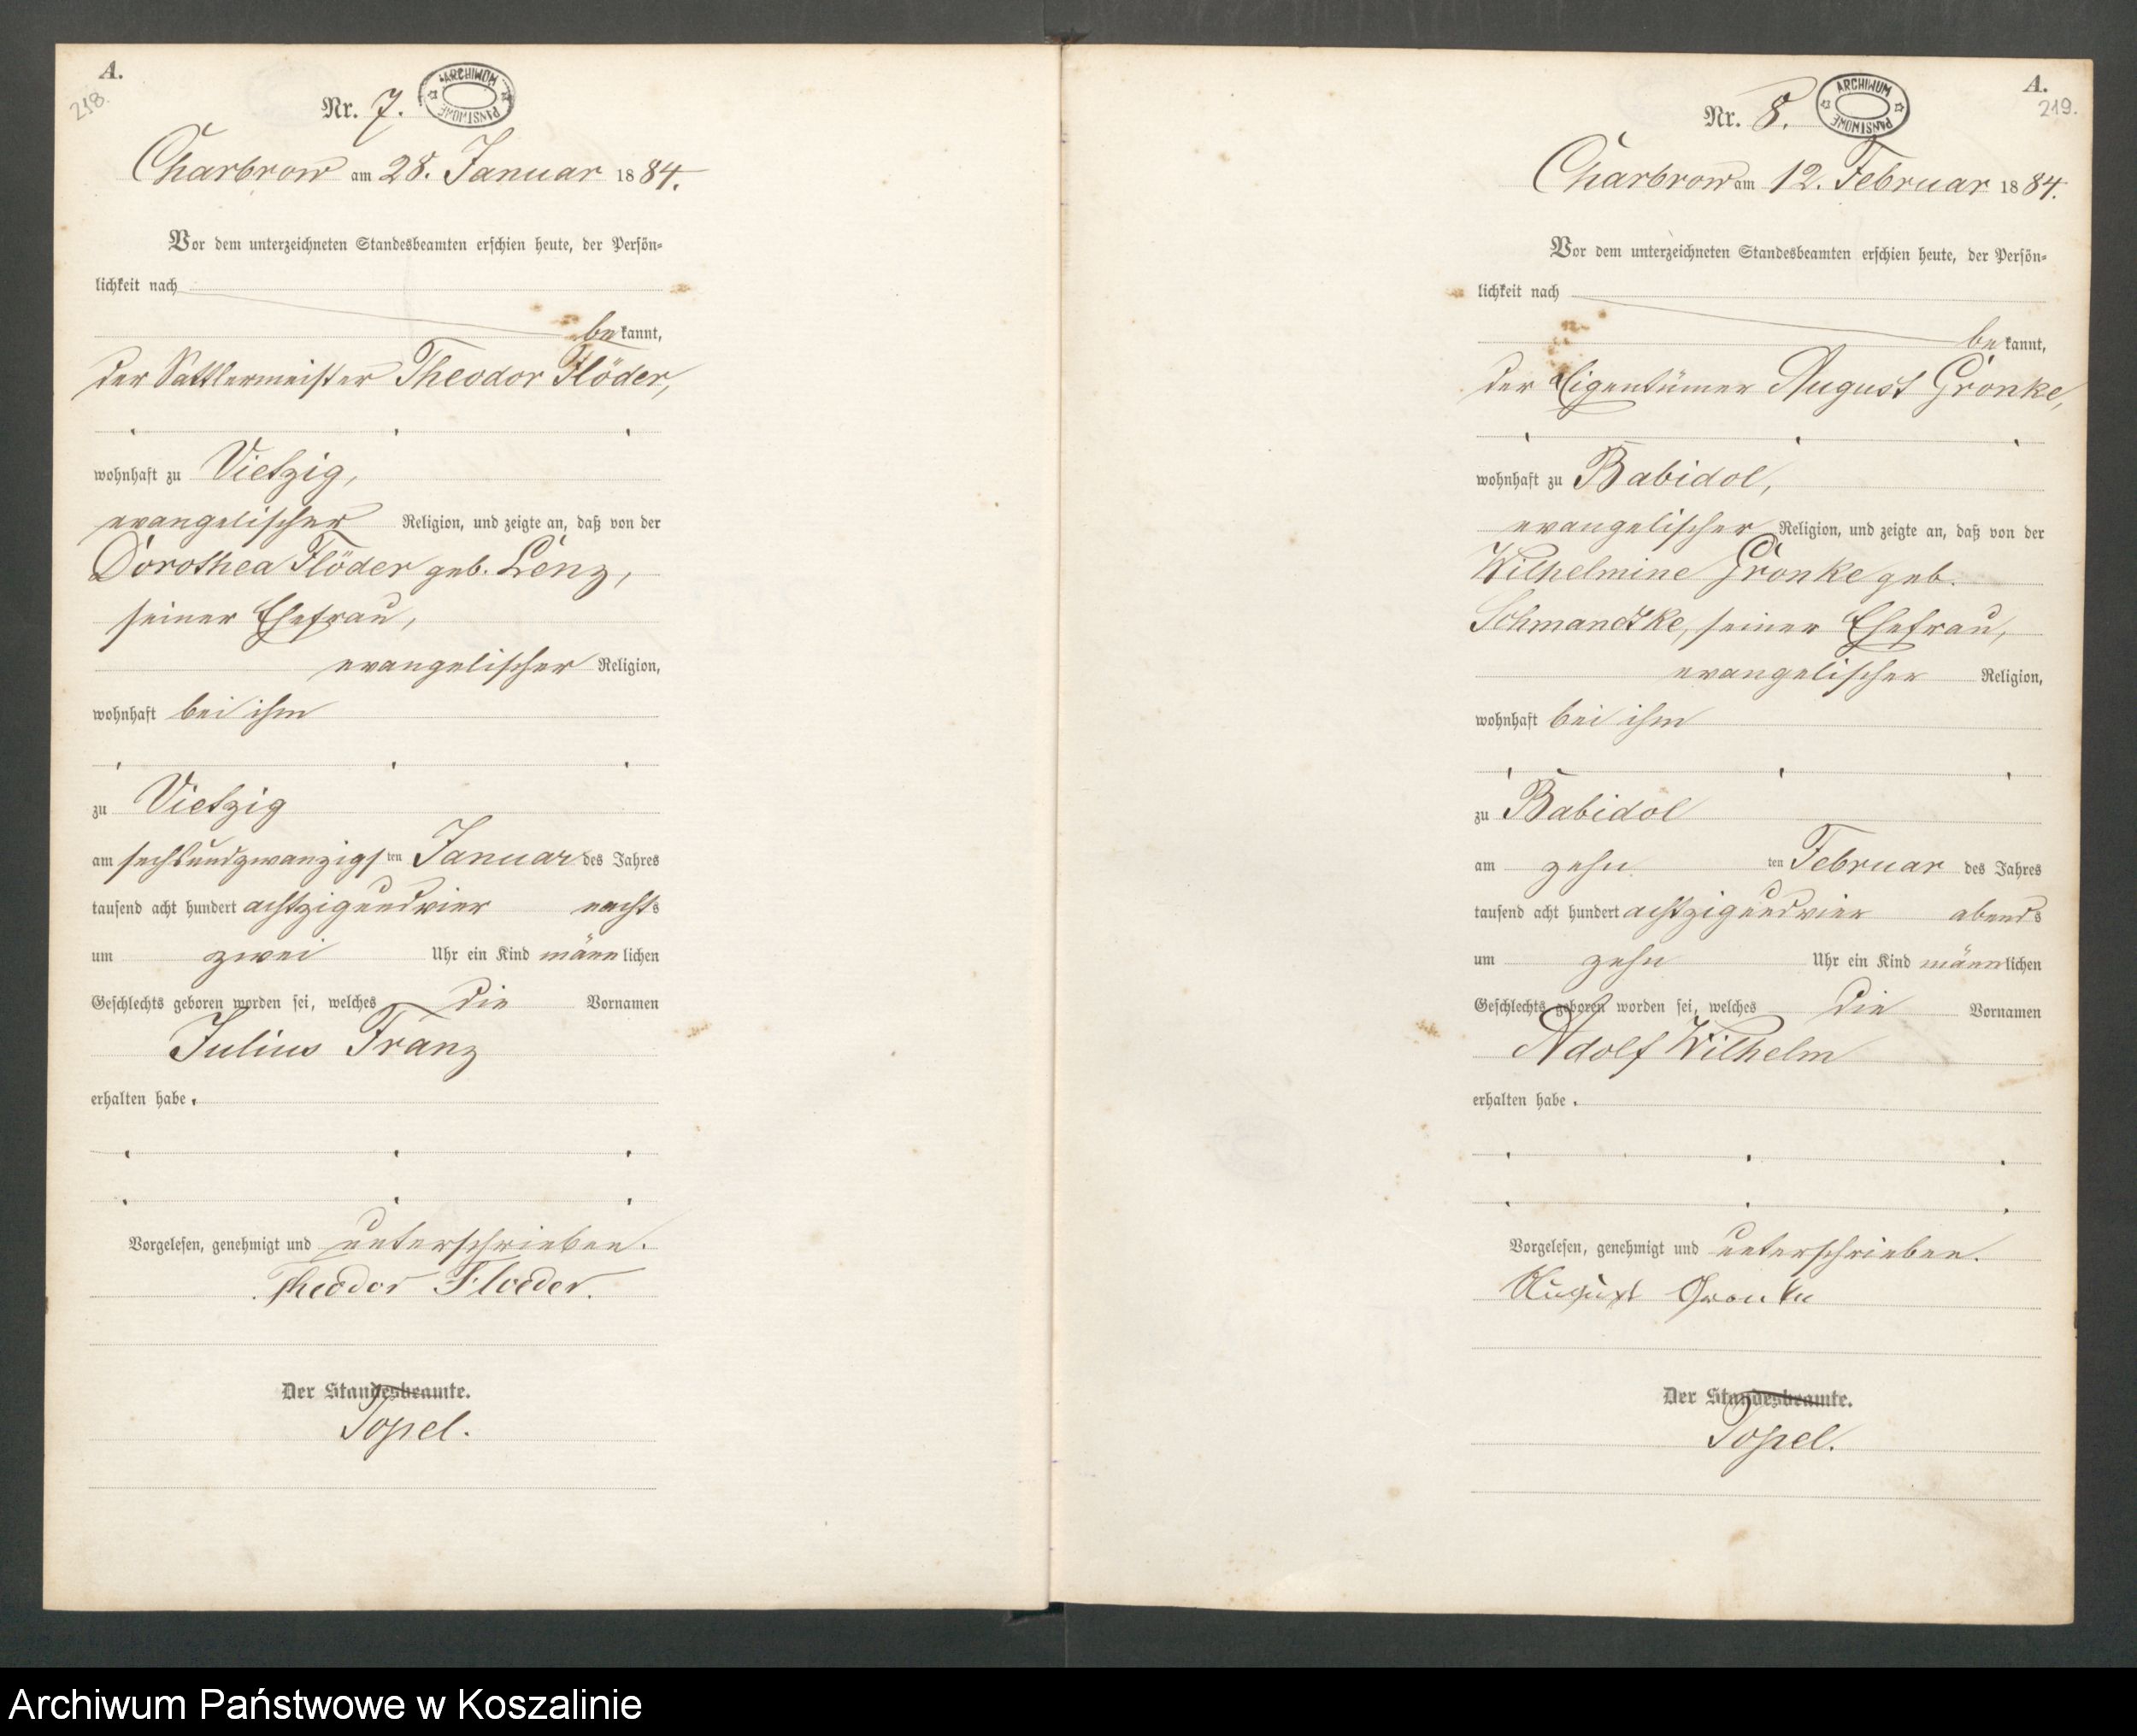 A.
218.
Nr. 7.
ARCHIWUM PAŃSTWOWE
Charbrow am 28. Januar 1884.
Vor dem unterzeichneten Standesbeamten erschien heute, der Persön-
lichkeit nach
bekannt,
der Sattlermeister Theodor Flöder,
wohnhaft zu Vietzig,
evangelischer Religion, und zeigte an, daß von der
Dorothea Flöder geb. Lenz,
seiner Ehefrau,
evangelischer Religion,
wohnhaft bei ihm
zu Vietzig
am sechsundzwanzigsten Januar des Jahres
tausend acht hundert achtzigundvier nachts
um zwei Uhr ein Kind männlichen
Geschlechts geboren worden sei, welches die Vornamen
Julius Franz
erhalten habe.
Vorgelesen, genehmigt und unterschrieben.
Theodor Floeder.
Der Standesbeamte.
Topel.
A.
219.
Nr. 8.
ARCHIWUM PAŃSTWOWE
Charbrow am 12. Februar 1884.
Vor dem unterzeichneten Standesbeamten erschien heute, der Persön-
lichkeit nach
bekannt,
der Eigentümer August Gronke,
wohnhaft zu Babidol,
evangelischer Religion, und zeigte an, daß von der
Wilhelmine Gronke geb.
Schmandtke, seiner Ehefrau,
evangelischer Religion,
wohnhaft bei ihm
zu Babidol
am zehnten Februar des Jahres
tausend acht hundert achtzigundvier abends
um zehn Uhr ein Kind männlichen
Geschlechts geboren worden sei, welches die Vornamen
Adolf Wilhelm
erhalten habe.
Vorgelesen, genehmigt und unterschrieben.
August Gronke
Der Standesbeamte.
Topel.
Archiwum Państwowe w Koszalinie